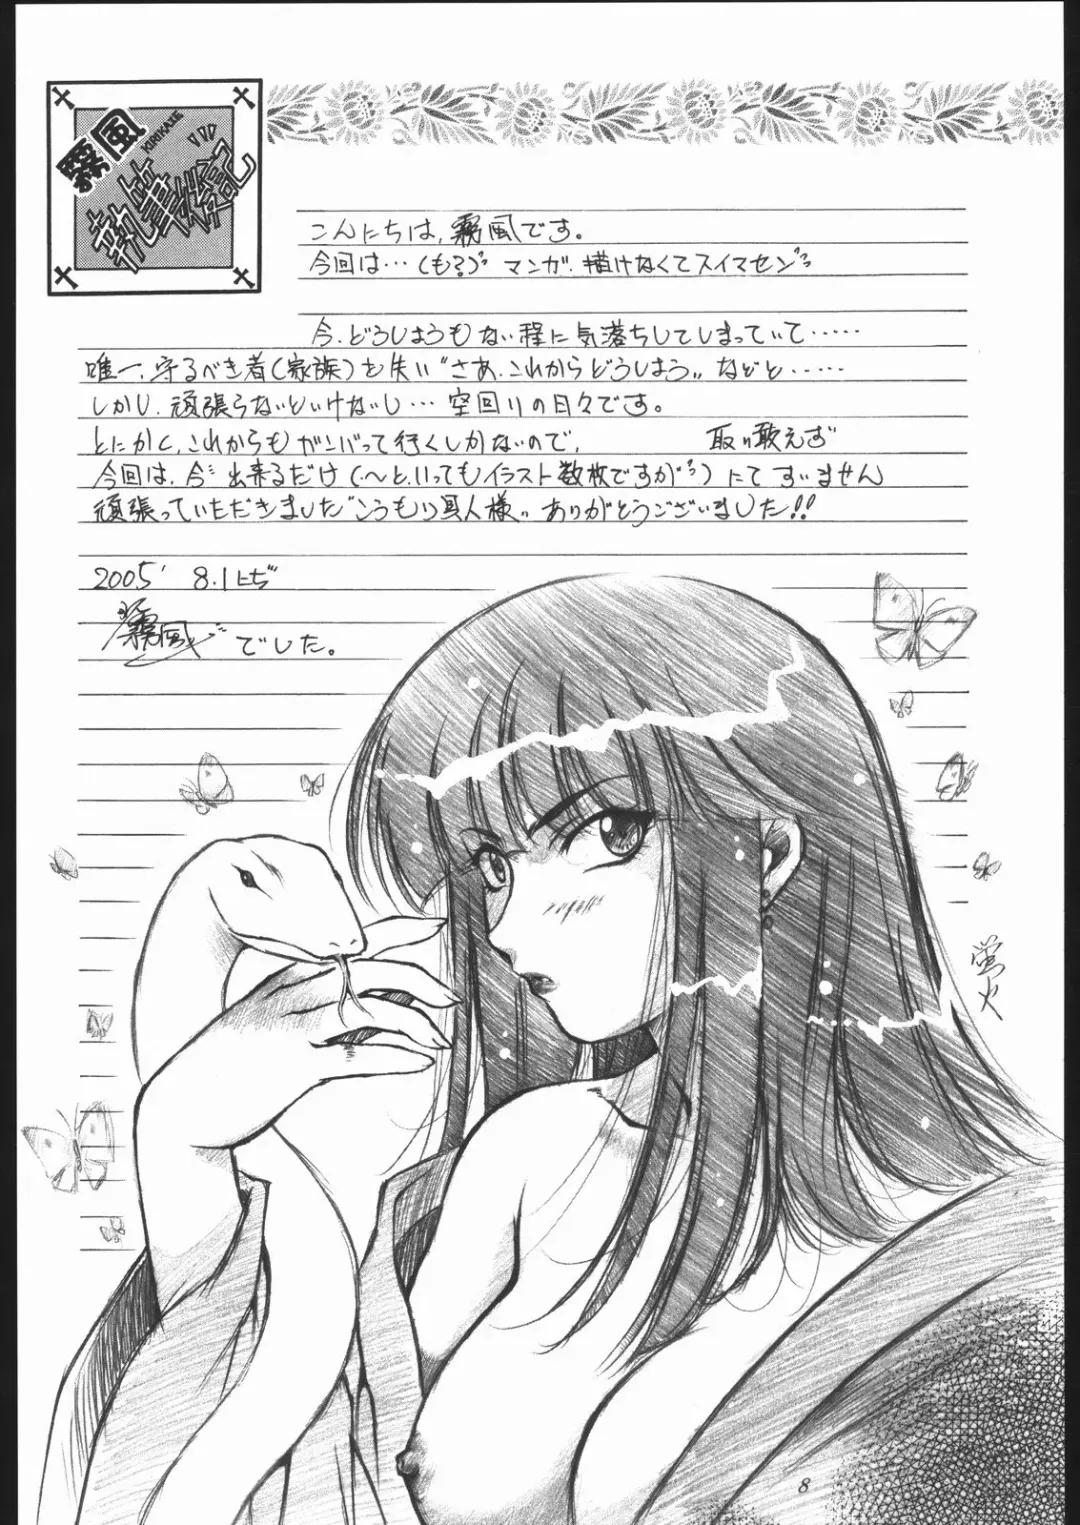 霧風
KIRIKAZE
執筆後記
こんにちは,霧風です。
今回は…(も?)マンガ、描けなくてスイマセン
今、どうしようもない程に気落ちしてしまっていて……
唯一、守るべき者(家族)を失い“さあ、これからどうしよう„などと……
しかし、頑張らないといけないし…空回りの日々です。
とにかく、これからもガンバって行くしかないので、 取り敢えず
今回は、今出来るだけ(〜といってもイラスト数枚ですが)にてすいません
頑張っていただきました“こうもり異人様„ありがとうございました!!
2005' 8.1
霧風 でした。
蛍火
8